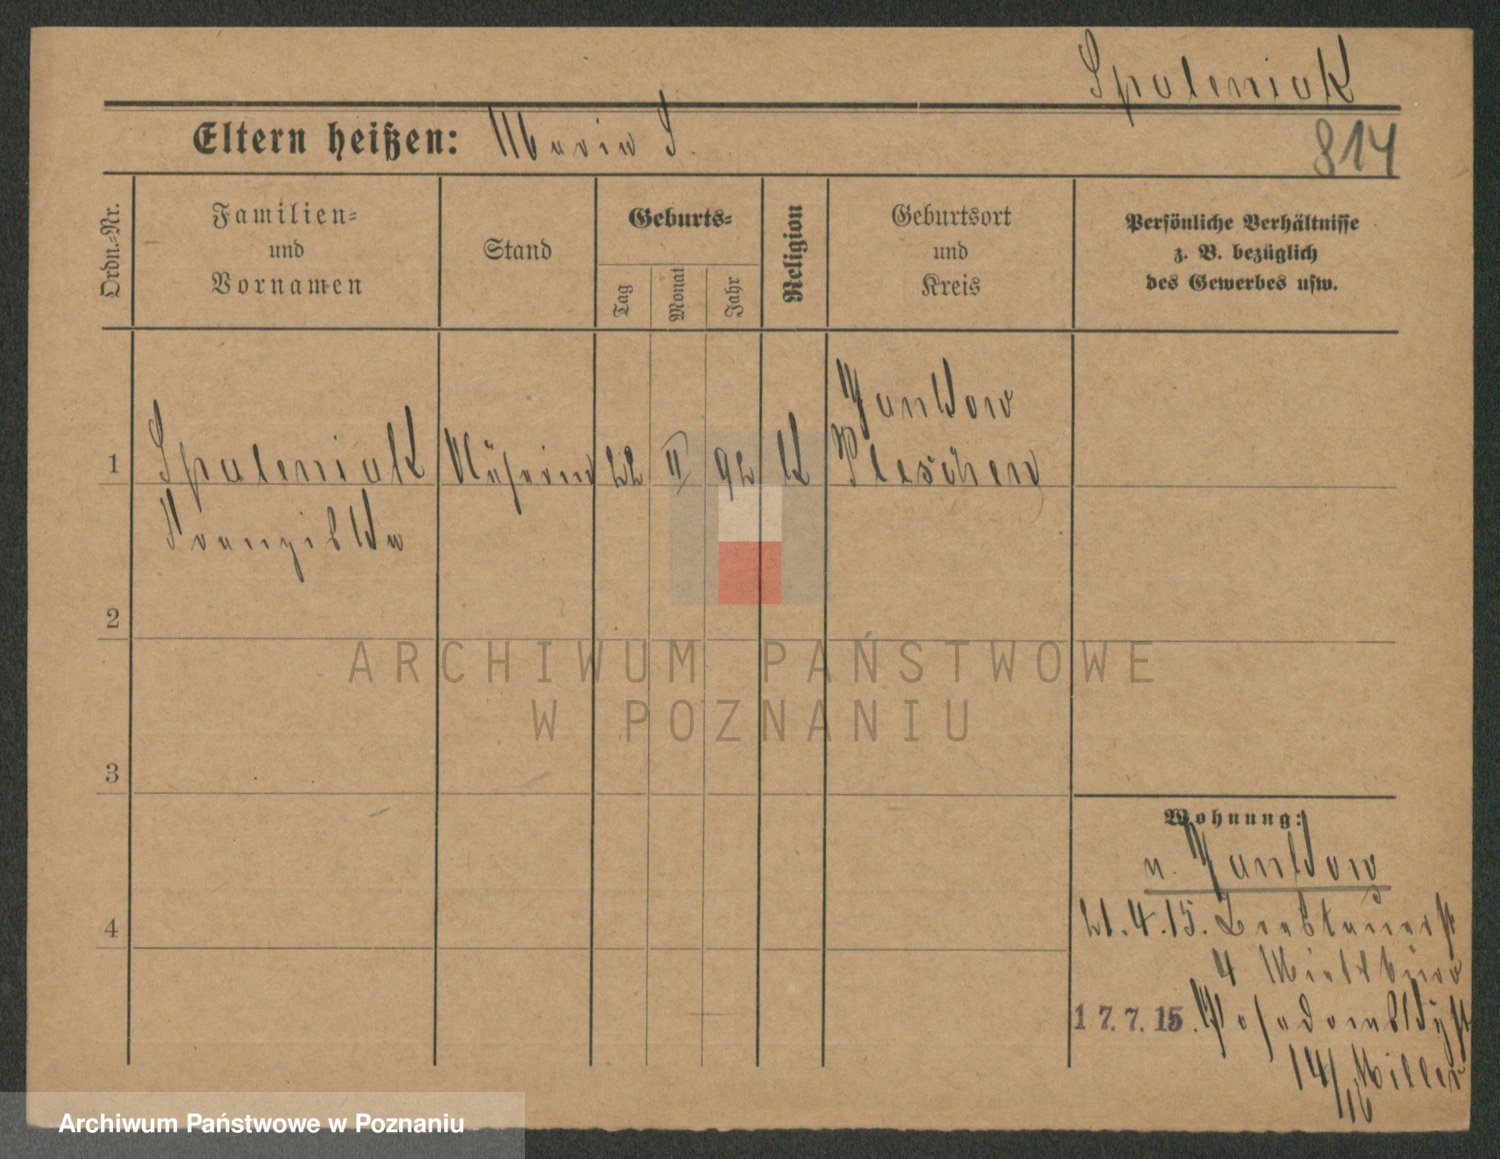 Spaleniak
Eltern heißen: Maria S.
814
Ordn.-Nr.
Familien-
und
Vornamen
Stand
Geburts-
Tag
Monat
Jahr
Religion
Geburtsort
und
Kreis
Persönliche Verhältnisse
z. B. bezüglich
des Gewerbes usw.
1
Spaleniak
Franziska
Näherin
22
II
92
K
Jankow
Pleschen
2
3
4
Wohnung:
n. Jankow
21.4.15.
4 Mietsbüro
17.7.15.
14/ Miller
ARCHIWUM PAŃSTWOWE
W POZNANIU
Archiwum Państwowe w Poznaniu